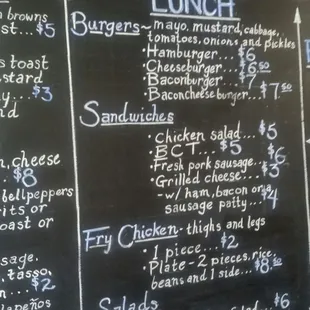 browns
st...$5
s toast
stard
y....$3
nd
n, cheese
$8
bell peppers
its or
oast or
sage.
. tasso.
n... $2
lapeños
LUNCH
Burgers~mayo, mustard, cabbage,
tomatoes, onions and pickles
·Hamburger... $6
·Cheeseburger... $6.50
·Baconburger... $7
·Baconcheeseburger... $7.50
Sandwiches
·Chicken salad... $5
·BCT... $5
·Fresh pork sausage... $6
·Grilled cheese... $3
-w/ ham, bacon or a
sausage patty... $4
Fry Chicken-thighs and legs
·1 piece... $2
·Plate-2 pieces, rice,
beans and 1 side... $8.50
Salads
$6